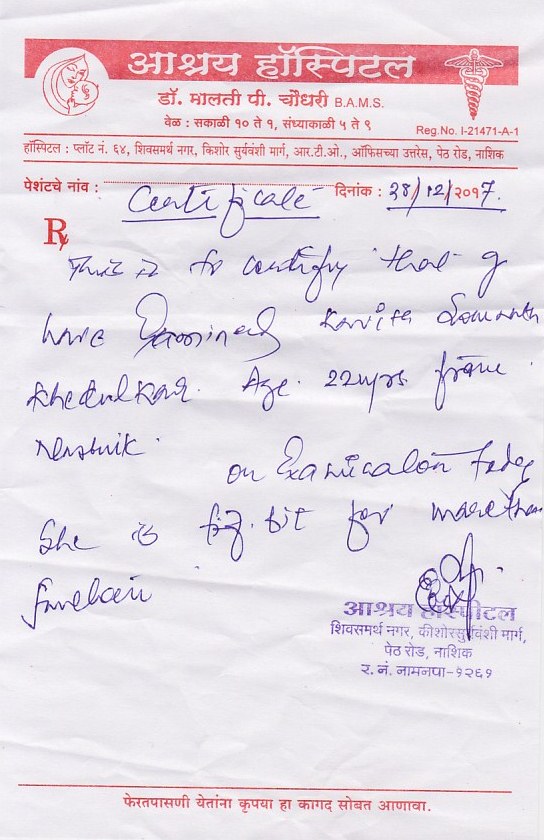 आश्रय हॉस्पिटल
डॉ. मालती पी. चौधरी B.A.M.S.
वेळ : सकाळी १० ते १, संध्याकाळी ५ ते ९
Reg.No. I-21471-A-1
हॉस्पिटल : प्लॉट नं. ६४, शिवसमर्थ नगर, किशोर सुर्यवंशी मार्ग, आर.टी.ओ., ऑफिसच्या उत्तरेस, पेठ रोड, नाशिक
पेशंटचे नांव : Certificate दिनांक : 28/12/२०१7.
Rx
This is to certify that I
have Examined Kavita
Khedulkar. Age. 22yrs from
Nashik.
on Examination today
She is fit for marethon
आश्रय हॉस्पीटल
शिवसमर्थ नगर, कीशोरसुर्यवंशी मार्ग,
पेठ रोड, नाशिक
र. नं. नामनपा-१२६१
फेरतपासणी येतांना कृपया हा कागद सोबत आणावा.